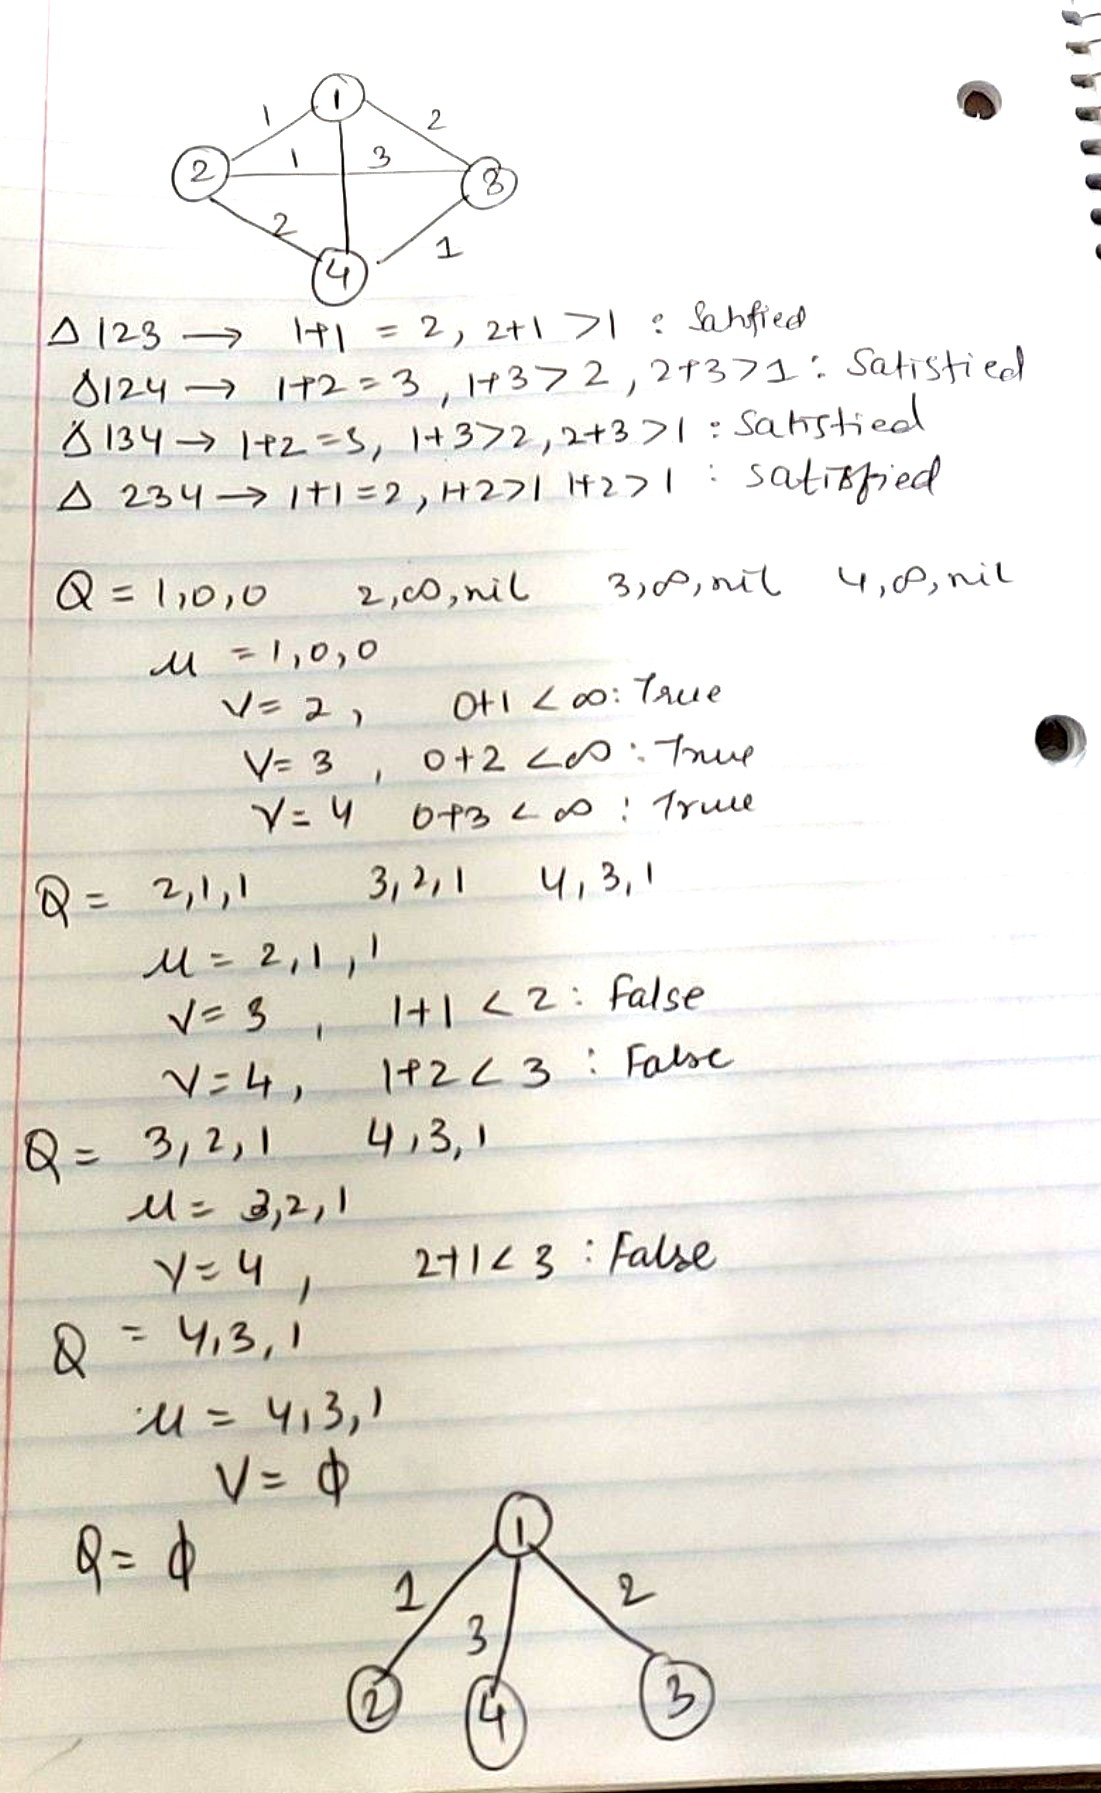 1
1 2
2 1 3 3
2 1
4
Δ 123 → 1+1 = 2, 2+1 >1 : Satisfied
Δ124 → 1+2 = 3, 1+3 > 2, 2+3>1 : Satisfied
Δ 134 → 1+2 = 3, 1+3>2, 2+3 >1 : Satisfied
Δ 234 → 1+1 = 2, 1+2>1 1+2 > 1 : satisfied
Q = 1,0,0 2,∞,nil 3,∞,nil 4,∞,nil
u = 1,0,0
V = 2, 0+1 < ∞ : True
V = 3, 0+2 <∞ : True
V = 4 0+3 < ∞ : True
Q = 2,1,1 3,2,1 4,3,1
u = 2,1,1
V = 3, 1+1 < 2 : False
V = 4, 1+2 < 3 : False
Q = 3,2,1 4,3,1
u = 3,2,1
V = 4, 2+1 < 3 : False
Q = 4,3,1
u = 4,3,1
V = ϕ
Q = ϕ
1
1 3 2
2 4 3